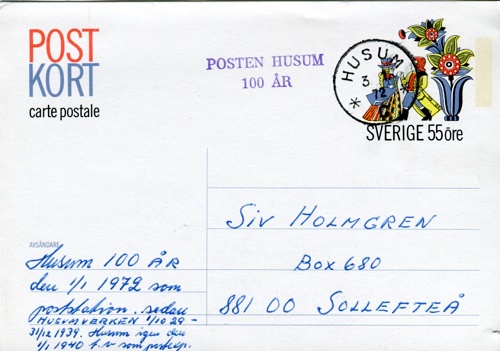 POST
KORT
carte postale
POSTEN HUSUM
100 ÅR
HUSUM
3
12
SVERIGE 55 öre
Siv Holmgren
Box 680
881 00 Sollefteå
AVSÄNDARE
Husum 100 ÅR
den 1/1 1972 som
poststation. sedan
HUSUMVERKEN 1/10 29-
31/12 1939. Husum igen den
1/1 1940 t.v som postexp.